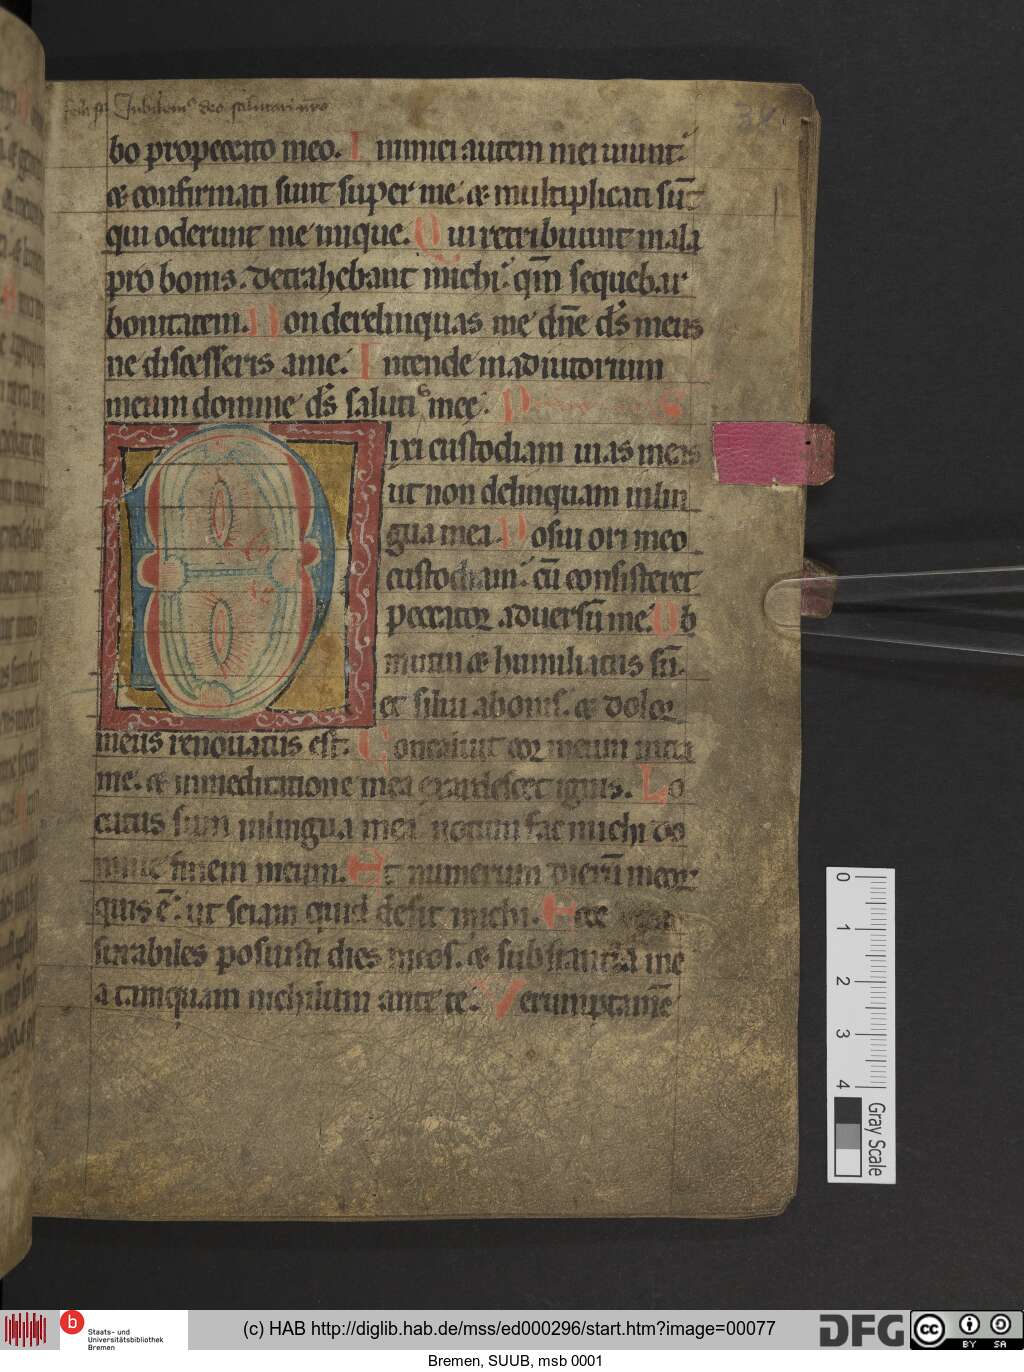 Jubilem9 deo salutari nro
34
bo propeccato meo. Inimici autem mei uiuunt.
& confirmati sunt super me. & multiplicati sūt
qui oderunt me inique. Qui retribuunt mala
pro bonis. detrahebant michi. qm̄ sequebar
bonitatem. Non derelinquas me dn̄e ds̄ meus
ne discesseris ame. Intende inadiutorium
meum domine ds̄ salutis meę.
Dixi custodiam uias meas
ut non delinquam inlin
gua mea. Posui ori meo
custodiam. cū consisteret
peccator aduersū me. Ob
mutui & humiliatus sū.
et silui abonis. & dolor
meus renouatus est. Concaluit cor meum intra
me. & inmeditatione mea exardescet ignis. Lo
cutus sum inlingua mea notum fac michi do
mine finem meum. Et numerum dierū meor
quis ē. ut sciam quid desit michi. Ecce
surabiles posuisti dies meos. & substantia me
a tamquam nichilum ante te. Verumptam̄e
0
1
2
3
4
Gray Scale
b
Staats- und
Universitätsbibliothek
Bremen
(c) HAB http://diglib.hab.de/mss/ed000296/start.htm?image=00077
DFG
cc
BY SA
Bremen, SUUB, msb 0001